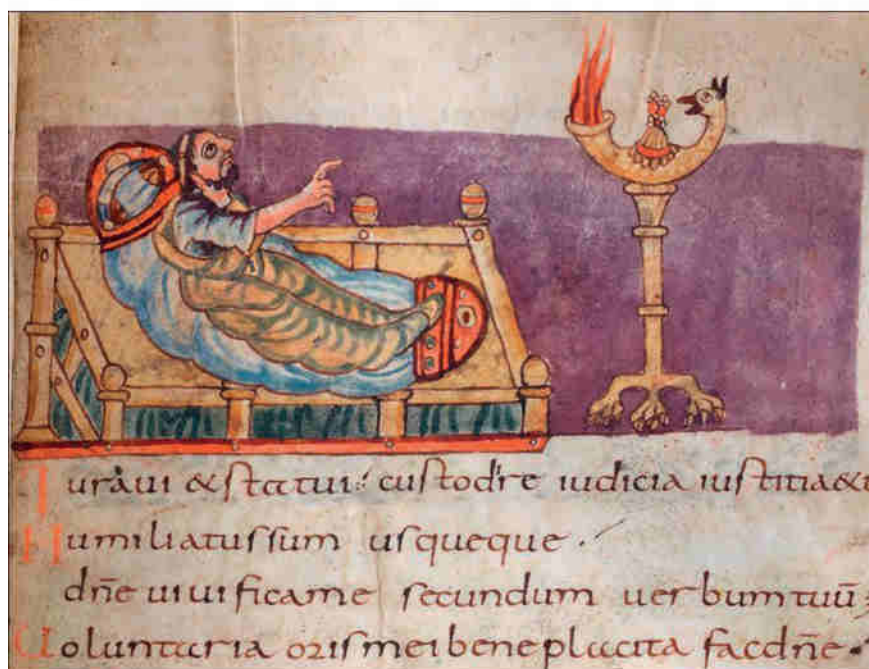 Iuraui & statui: custodire iudicia iustitiae
Humiliatus sum usqueque.
dñe uiuifica me secundum uerbum tuū:
Uoluntaria oris mei beneplacita fac dñe.